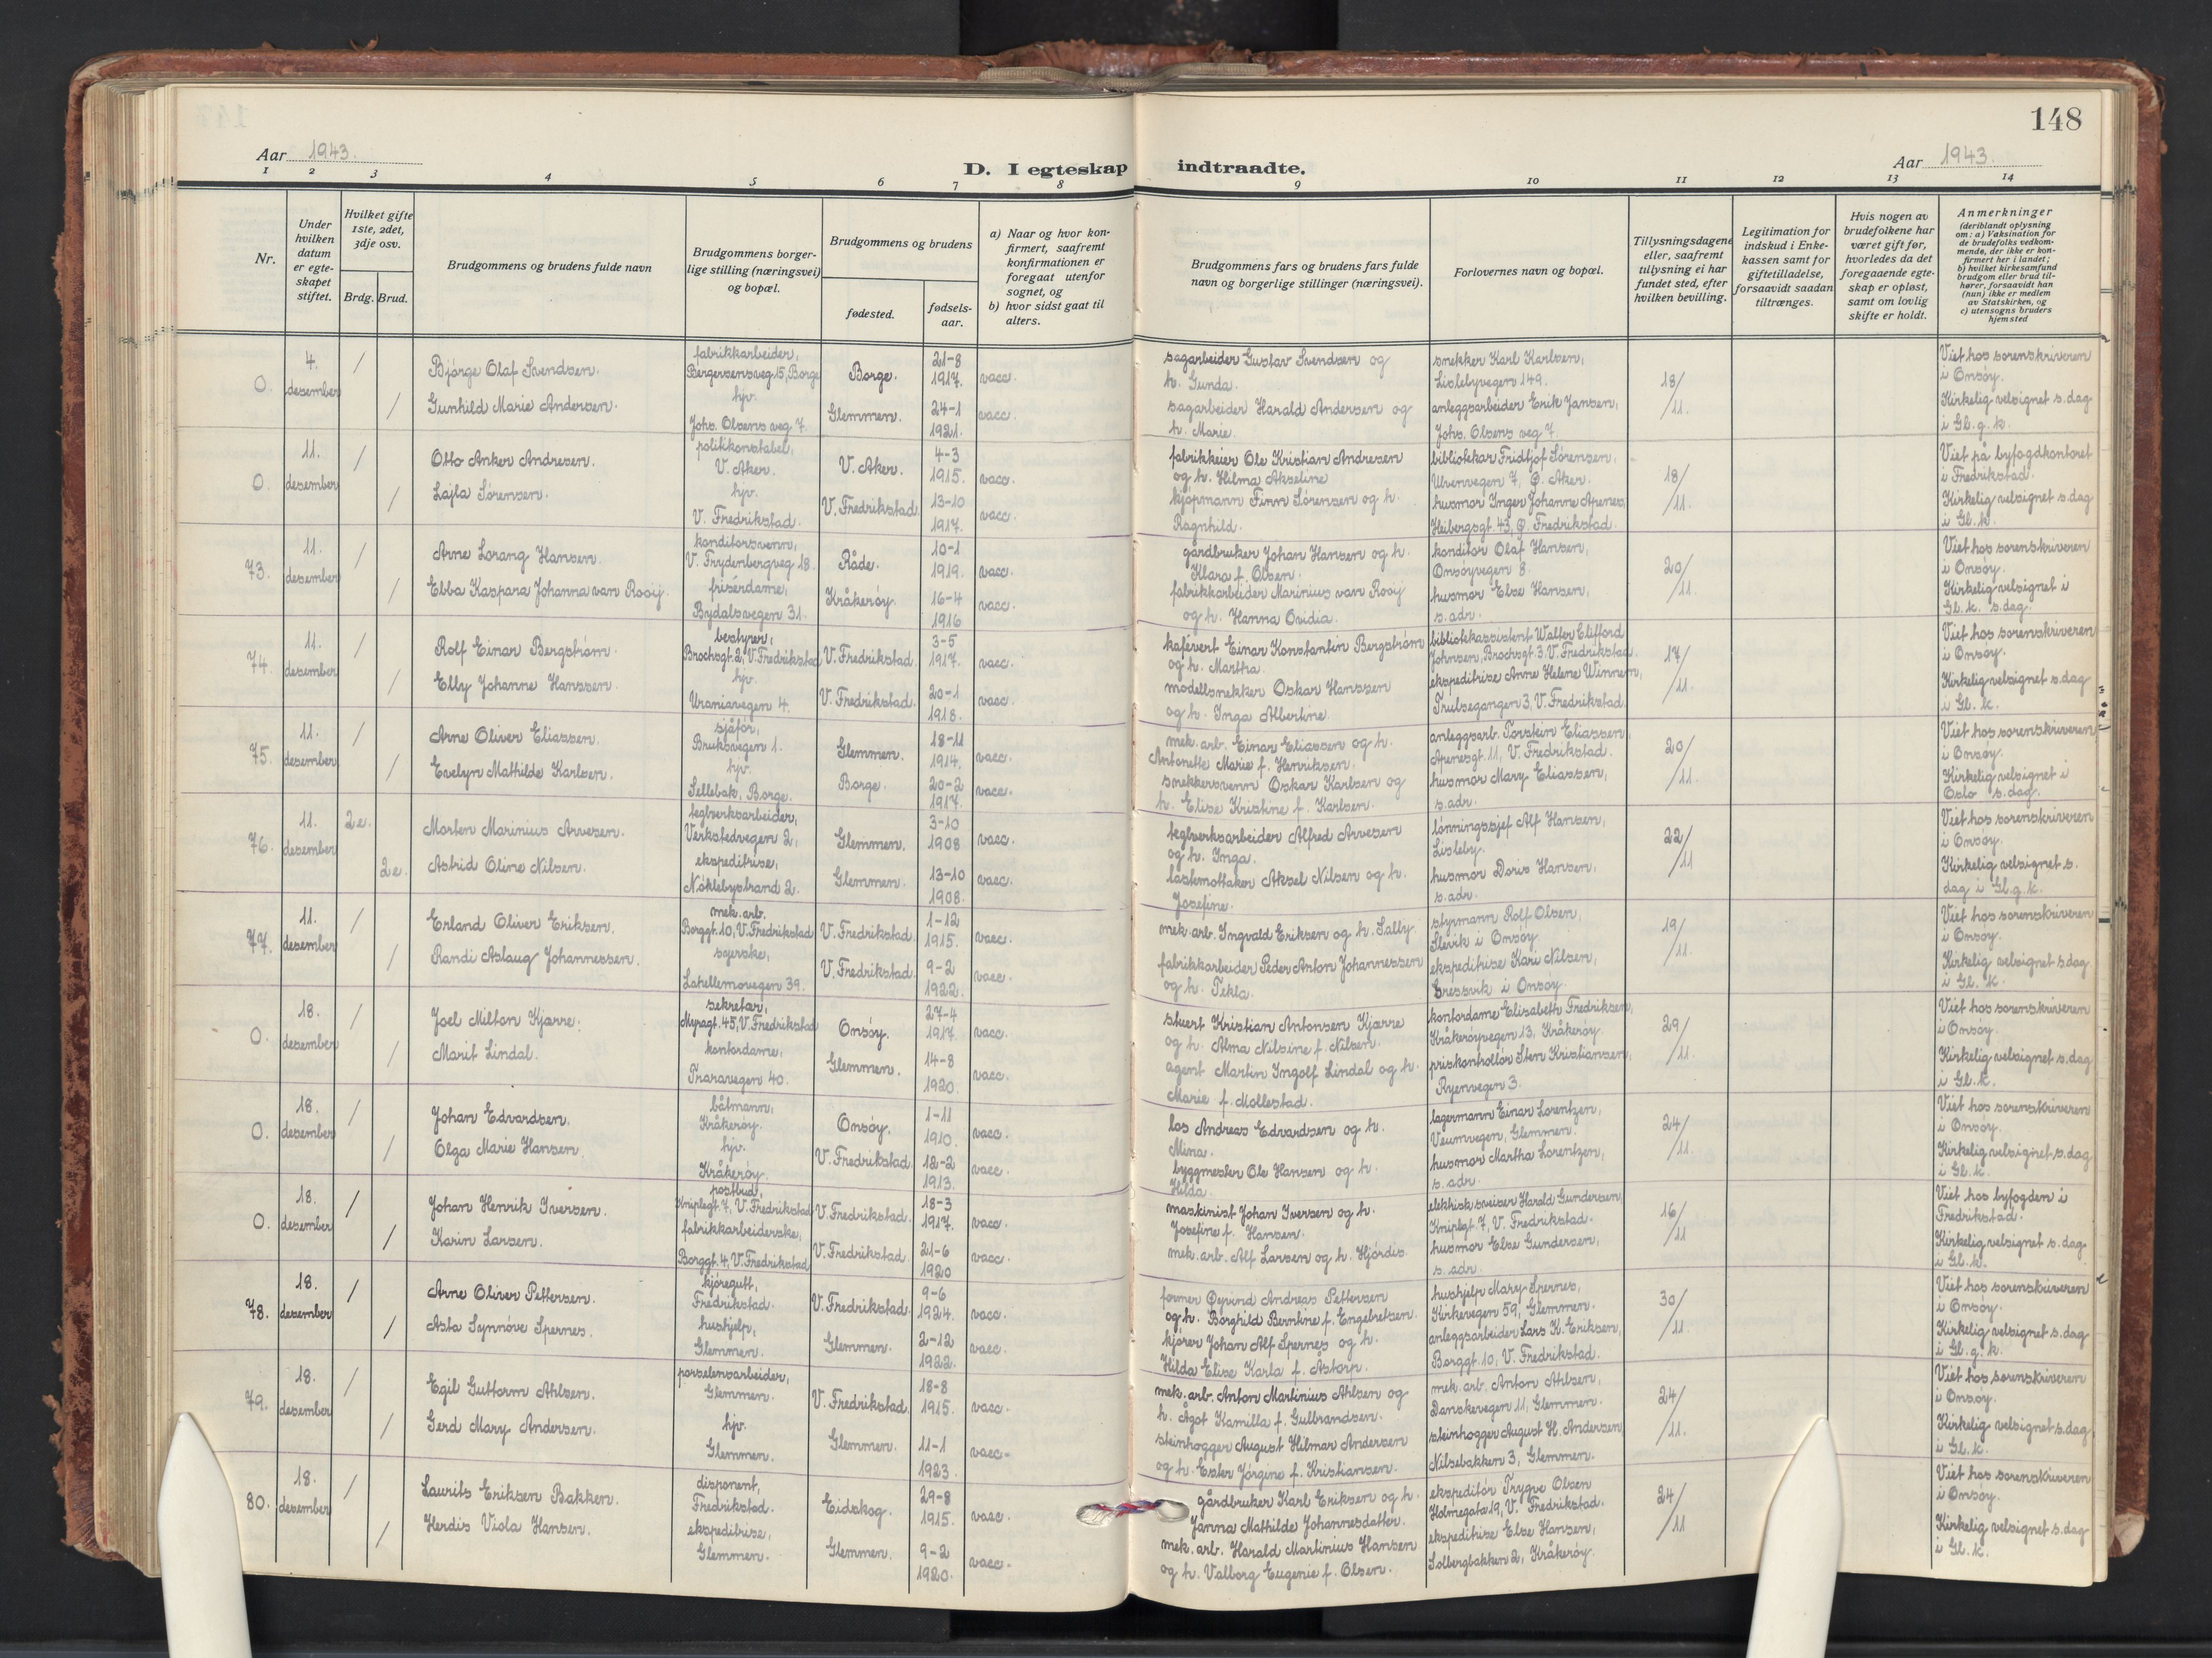 148
Aar 1943.
D. I egteskap indtraadte.
Aar 1943.
1 2 3 4 5 6 7 8 9 10 11 12 13 14
Nr.
Under hvilken datum er egteskapet stiftet.
Hvilket gifte 1ste, 2det, 3dje osv.
Brdg. Brud.
Brudgommens og brudens fulde navn
Brudgommens borgerlige stilling (næringsvei) og bopæl.
Brudgommens og brudens
fødested.
fødselsaar.
a) Naar og hvor konfirmert, saafremt konfirmationen er foregaat utenfor sognet, og
b) hvor sidst gaat til alters.
Brudgommens fars og brudens fars fulde navn og borgerlige stillinger (næringsvei).
Forlovernes navn og bopæl.
Tillysningsdagene eller, saafremt tillysning ei har fundet sted, efter hvilken bevilling.
Legitimation for indskud i Enkekassen samt for giftetilladelse, forsaavidt saadan tiltrænges.
Hvis nogen av brudefolkene har været gift før, hvorledes da det foregaaende egteskap er opløst, samt om lovlig skifte er holdt.
Anmerkninger (deriblandt oplysning om: a) Vaksination for de brudefolks vedkommende, der ikke er konfirmert her i landet; b) hvilket kirkesamfund brudgom eller brud tilhører, forsaavidt han (hun) ikke er medlem av Statskirken, og c) utensogns bruders hjemsted
0. 4. desember /
Bjørge Olaf Svendsen. fabrikkarbeider, Bergersensveg 15, Borge Borge. 21-8 1917. vacc.
/ Gunhild Marie Andersen. hjv. Johs. Olsens veg 7. Glemmen. 24-1 1921. vacc.
sagarbeider Gustav Svendsen og h. Gunda.
sagarbeider Harald Andersen og h. Marie.
snekker Karl Karlsen, Lislebyvegen 149.
anleggsarbeider Erik Jansen, Johs. Olsens veg 7.
18/11.
Viet hos sorenskriveren i Onsøy. Kirkelig velsignet s. dag i Gl. g. k.
0. 11. desember /
Otto Anker Andresen. politikonstabel, V. Aker. V. Aker. 4-3 1915. vacc.
/ Lajla Sørensen. hjv. V. Fredrikstad. V. Fredrikstad. 13-10 1917. vacc.
fabrikkeier Ole Kristian Andresen og h. Hilma Akseline
kjøpmann Finn Sørensen og h. Ragnhild.
bibliotekar Fridtjof Sørensen, 7, Ø. Aker.
husmor Inger Johanne Apenes, Heibergsgt. 43, Ø. Fredrikstad.
18/11.
Viet på byfogdkontoret i Fredrikstad. Kirkelig velsignet s. dag i Gl. k.
73. 11. desember /
Arne Lorang Hansen. konditorsvenn, V. Frydenbergveg 18. Råde. 10-1 1919. vacc.
/ Ebba Kaspara Johanna van Rooij. frisérdame, Bydalsvegen 31. Kråkerøy. 16-4 1916 vacc.
gårdbruker Johan Hansen og h. Klara f. Olsen.
fabrikkarbeider Marinius van Rooij og h. Hanna Ovidia.
konditor Olaf Hansen, Onsøyvegen 8.
husmor Else Hansen, s. adr.
20/11.
Viet hos sorenskriveren i Onsøy. Kirkelig velsignet i Gl. k. s. dag.
74. 11. desember /
Rolf Einar Bergstrøm. bestyrer, Brochsgt. 2, V. Fredrikstad V. Fredrikstad. 3-5 1917. vacc.
/ Elly Johanne Hanssen. hjv. Uraniavegen 4. V. Fredrikstad. 20-1 1918. vacc.
kafévert Einar Konstantin Bergstrøm og h. Martha.
modellsnekker Oskar Hanssen og h. Inga Albertine.
bibliotekassistent Walter Clifford Johnsen, Brochsgt. 3. V. Fredrikstad.
ekspeditrise Anne Helene Winnem, Trulsegangen 3, V. Fredrikstad.
17/11.
Viet hos sorenskriveren i Onsøy. Kirkelig velsignet s. dag i Gl. k.
75. 11. desember /
Arne Oliver Eliassen. sjåfør, Bruksvegen 1. Glemmen. 18-11 1914. vacc.
/ Evelyn Mathilde Karlsen. hjv. Sellebak, Borge. Borge. 20-2 1917. vacc.
mek. arb. Einar Eliassen og h. Antonette Marie f. Henriksen.
snekkersvenn Oskar Karlsen og h. Elise Kristine f. Karlsen.
anleggsarb. Torstein Eliassen, Apenesgt. 11, V. Fredrikstad.
husmor Mary Eliassen, s. adr.
20/11.
Viet hos sorenskriveren i Onsøy. Kirkelig velsignet i Oslo s. dag.
76. 11. desember 2 e.
Morten Marinius Arvesen. teglverksarbeider, Verkstedvegen 2, Glemmen. 3-10 1908 vacc.
2 e. Astrid Oline Nilsen. ekspeditrise, Nøklebystrand 2. Glemmen. 13-10 1908. vacc.
teglverksarbeider Alfred Arvesen og h. Inga.
lastemottaker Aksel Nilsen og h. Josefine.
lønningssjef Alf Hansen, Lisleby.
husmor Doris Hansen, s. adr.
22/11
Viet hos sorenskriveren i Onsøy. Kirkelig velsignet s. dag i Gl. g. k.
77. 11. desember /
Erland Oliver Eriksen. mek. arb. Borggt. 10, V. Fredrikstad V. Fredrikstad. 1-12 1915. vacc.
/ Randi Aslaug Johannessen. syerske, Lahellemovegen 39. V. Fredrikstad. 9-2 1922. vacc.
mek. arb. Ingvald Eriksen og h. Sally.
fabrikkarbeider Peder Anton Johannessen og h. Tekla.
styrmann Rolf Olsen, Slevik i Onsøy.
ekspeditrise Kari Nilsen, Gressvik i Onsøy.
19/11.
Viet hos sorenskriveren i Onsøy. Kirkelig velsignet s. dag i Gl. k.
0. 18. desember /
Joel Milton Kjærre. sekretær, Myragt. 45, V. Fredrikstad Onsøy. 27-4 1917. vacc.
/ Marit Lindal. kontordame, Traravegen 40. Glemmen. 14-8 1920. vacc.
stuert Kristian Antonsen Kjærre og h. Alma Nilsine f. Nilsen.
agent Martin Ingolf Lindal og h. Marie f. Mollestad.
kontordame Elisabeth Fredriksen, Kråkerøyvegen 13, Kråkerøy.
priskontrollør Sten Kristiansen, Ryenvegen 3.
29/11.
Viet hos sorenskriveren i Onsøy. Kirkelig velsignet s. dag i Gl. k.
0. 18. desember /
Johan Edvardsen. båtmann, Kråkerøy. Onsøy. 1-11 1910. vacc.
/ Olga Marie Hansen. hjv. Kråkerøy. V. Fredrikstad. 12-2 1913. vacc.
los Andreas Edvardsen og h. Mina.
byggmester Ole Hansen og h. Hilda.
lagermann Einar Lorentzen, Veumvegen, Glemmen.
husmor Martha Lorentzen, s. adr.
24/11.
Viet hos sorenskriveren i Onsøy. Kirkelig velsignet s. dag i Gl. k.
0. 18. desember /
Johan Henrik Iversen. postbud, Kniplegt. 7, V. Fredrikstad V. Fredrikstad. 18-3 1917. vacc.
/ Karin Larsen. fabrikkarbeiderske, Borggt. 4, V. Fredrikstad V. Fredrikstad. 21-6 1920 vacc.
maskinist Johan Iversen og h. Josefine f. Hansen.
mek. arb. Alf Larsen og h. Hjørdis.
elektrisk sveiser Harald Gundersen, Kniplegt. 7, V. Fredrikstad.
husmor Else Gundersen, s. adr.
16/11
Viet hos byfogden i Fredrikstad. Kirkelig velsignet s. dag i Gl. k.
78. 18. desember /
Arne Oliver Pettersen. kjøregutt, Fredrikstad. V. Fredrikstad. 9-6 1924. vacc.
/ Asta Synnøve Spernes. hushjelp, Glemmen. Glemmen. 2-12 1922. vacc.
former Øyvind Andreas Pettersen og h. Borghild Berntine f. Engebretsen.
kjører Johan Alf Spernes og h. Hilda Elise Karla f. Åstorp.
hushjelp Mary Spernes, Kirkevegen 59, Glemmen.
anleggsarbeider Lars K. Eriksen, Borggt. 10, V. Fredrikstad.
30/11.
Viet hos sorenskriveren i Onsøy. Kirkelig velsignet s. dag i Gl. g. k.
79. 18. desember /
Egil Guttorm Ahlsen. porselensarbeider, Glemmen. V. Fredrikstad. 18-8 1915. vacc.
/ Gerd Mary Andersen. hjv. Glemmen. Glemmen. 11-1 1923. vacc.
mek. arb. Anton Martinius Ahlsen og h. Ågot Kamilla f. Gulbrandsen.
steinhogger August Hilmar Andersen og h. Ester Jørgine f. Kristiansen.
mek. arb. Anton Ahlsen, Danskevegen 11, Glemmen.
steinhogger August H. Andersen, Nilsebakken 3, Glemmen.
24/11.
Viet hos sorenskriveren i Onsøy. Kirkelig velsignet s. dag i Gl. k.
80. 18. desember /
Laurits Eriksen Bakken. disponent, Fredrikstad. Eidskog. 29-8 1915. vacc.
/ Herdis Viola Hansen. ekspeditrise, Glemmen. Glemmen. 9-2 1920. vacc.
gårdbruker Karl Eriksen og h. Janna Mathilde Johannesdatter.
mek. arb. Harald Martinius Hansen og h. Valborg Eugenie f. Olsen.
ekspeditør Trygve Olsen Holmegata 19, V. Fredrikstad.
ekspeditrise Else Hansen, Solbergbakken 2, Kråkerøy.
24/11
Viet hos sorenskriveren i Onsøy. Kirkelig velsignet s. dag i Gl. k.